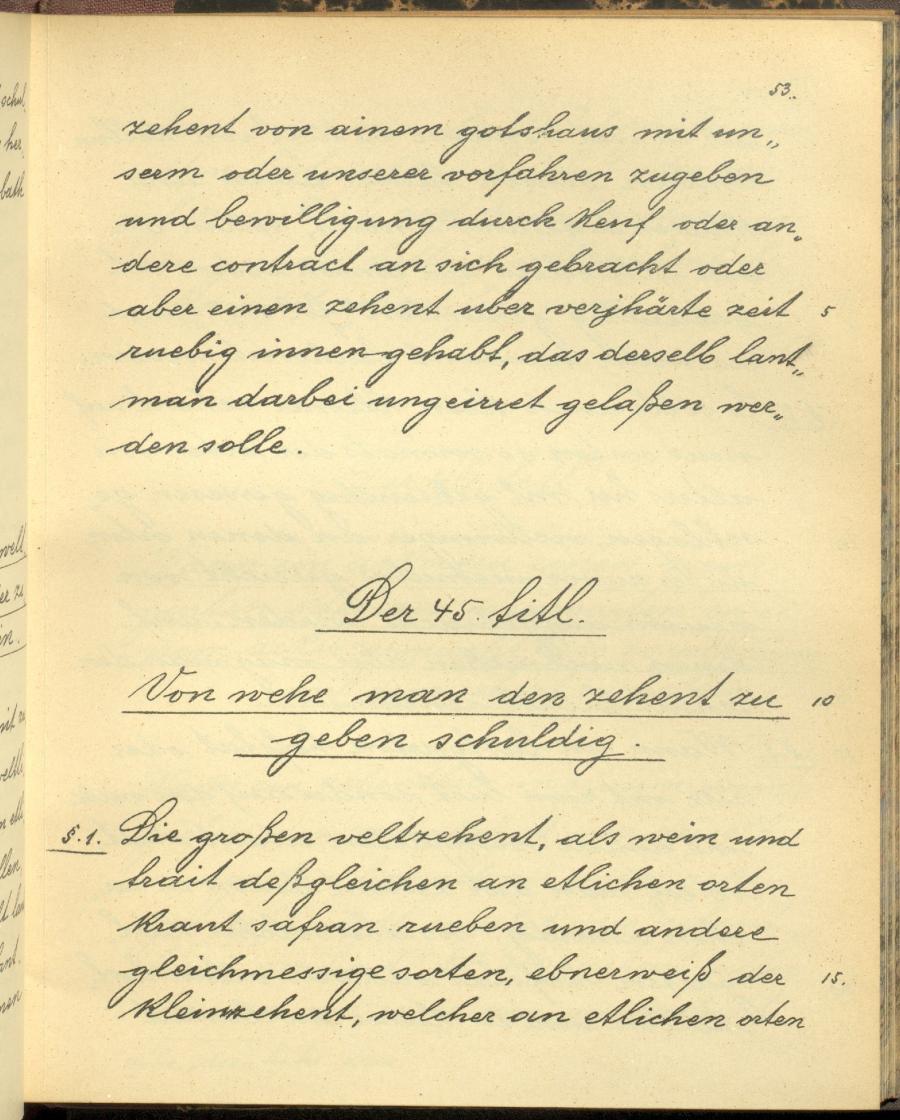 53.
zehent von ainem gotshaus mit un„
serm oder unserer vorfahren zugeben
und bewilligung durch kenf oder an„
dere contract an sich gebracht oder
aber einen zehent uber verjhärte zeit 5
ruebig innen gehabt, das derselb lant„
man darbei ungeirret gelaßen wer„
den solle.
Der 45. titl.
Von wehe man den zehent zu 10
geben schuldig.
§.1. Die großen veltzehent, als wein und
trait deßgleichen an etlichen orten
kraut safran rueben und andere
gleichmessige sorten, ebnerweiß der 15.
kleinzehent, welcher an etlichen orten